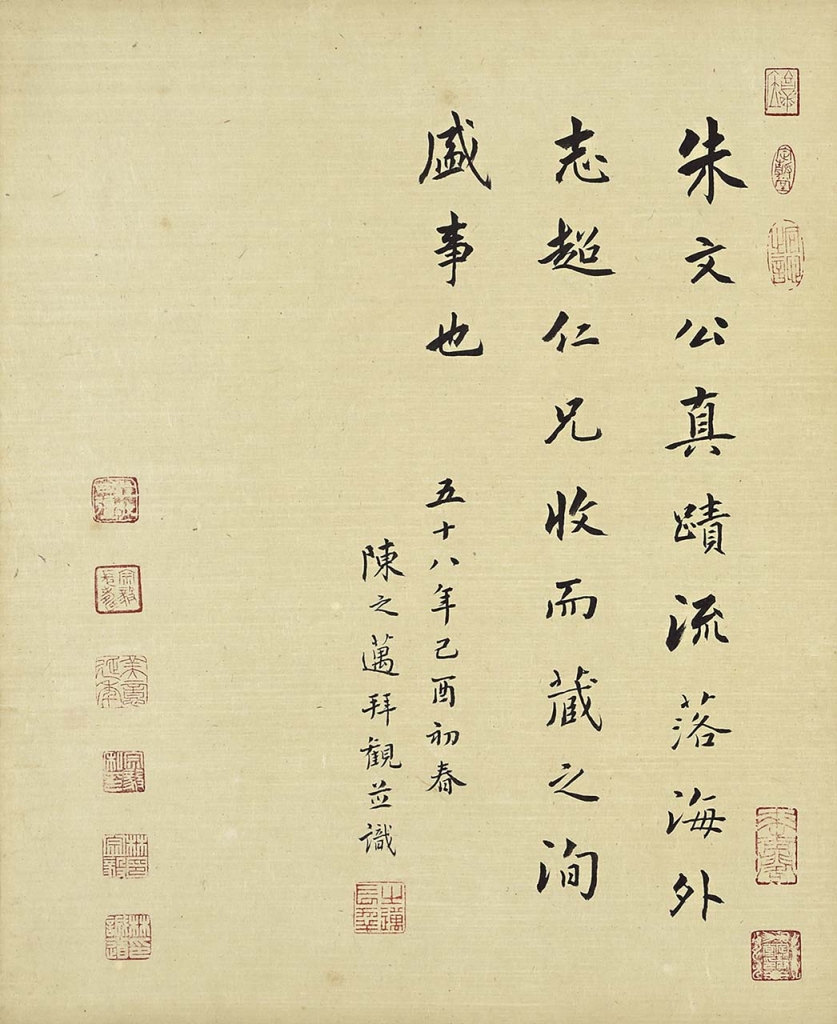 朱文公真蹟流落海外
志超仁兄收而藏之洵
盛事也
五十八年己酉初春
陳之邁拜觀並識